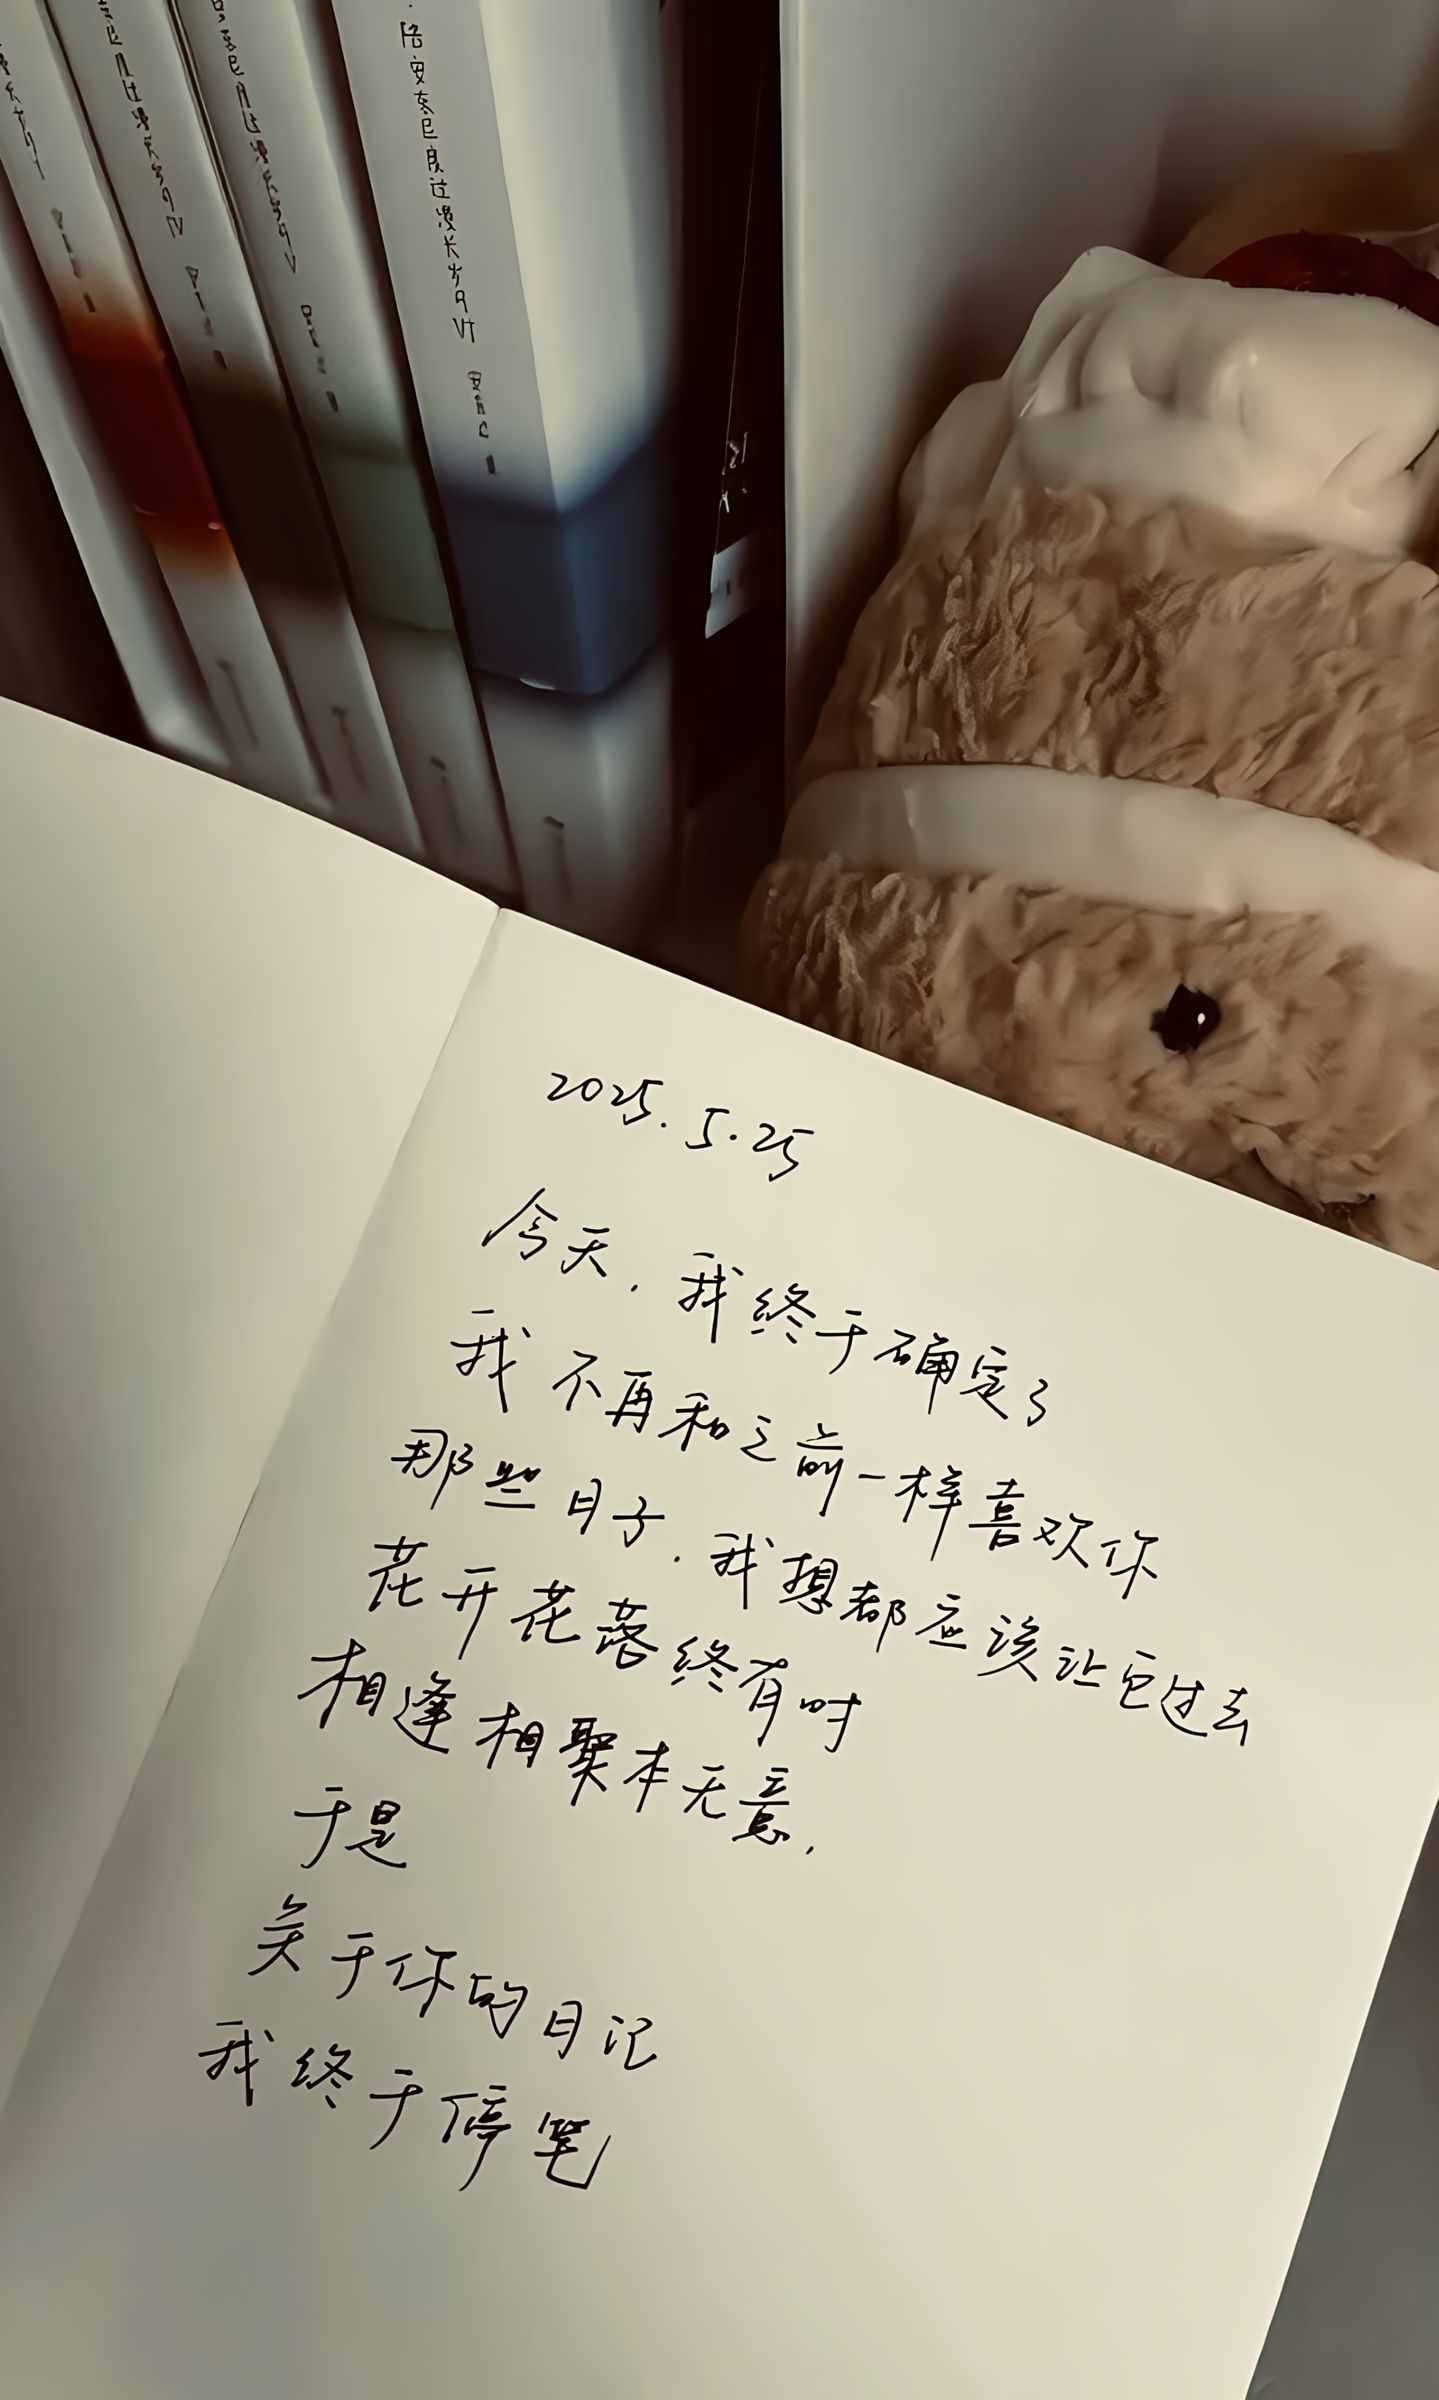 陪安东尼度过漫长岁月 VI
2025.5.25
今天，我终于确定了
我不再和之前一样喜欢你
那些日子，我想都应该让它过去
花开花落终有时
相逢相聚本无意，
于是
关于你的日记
我终于停笔